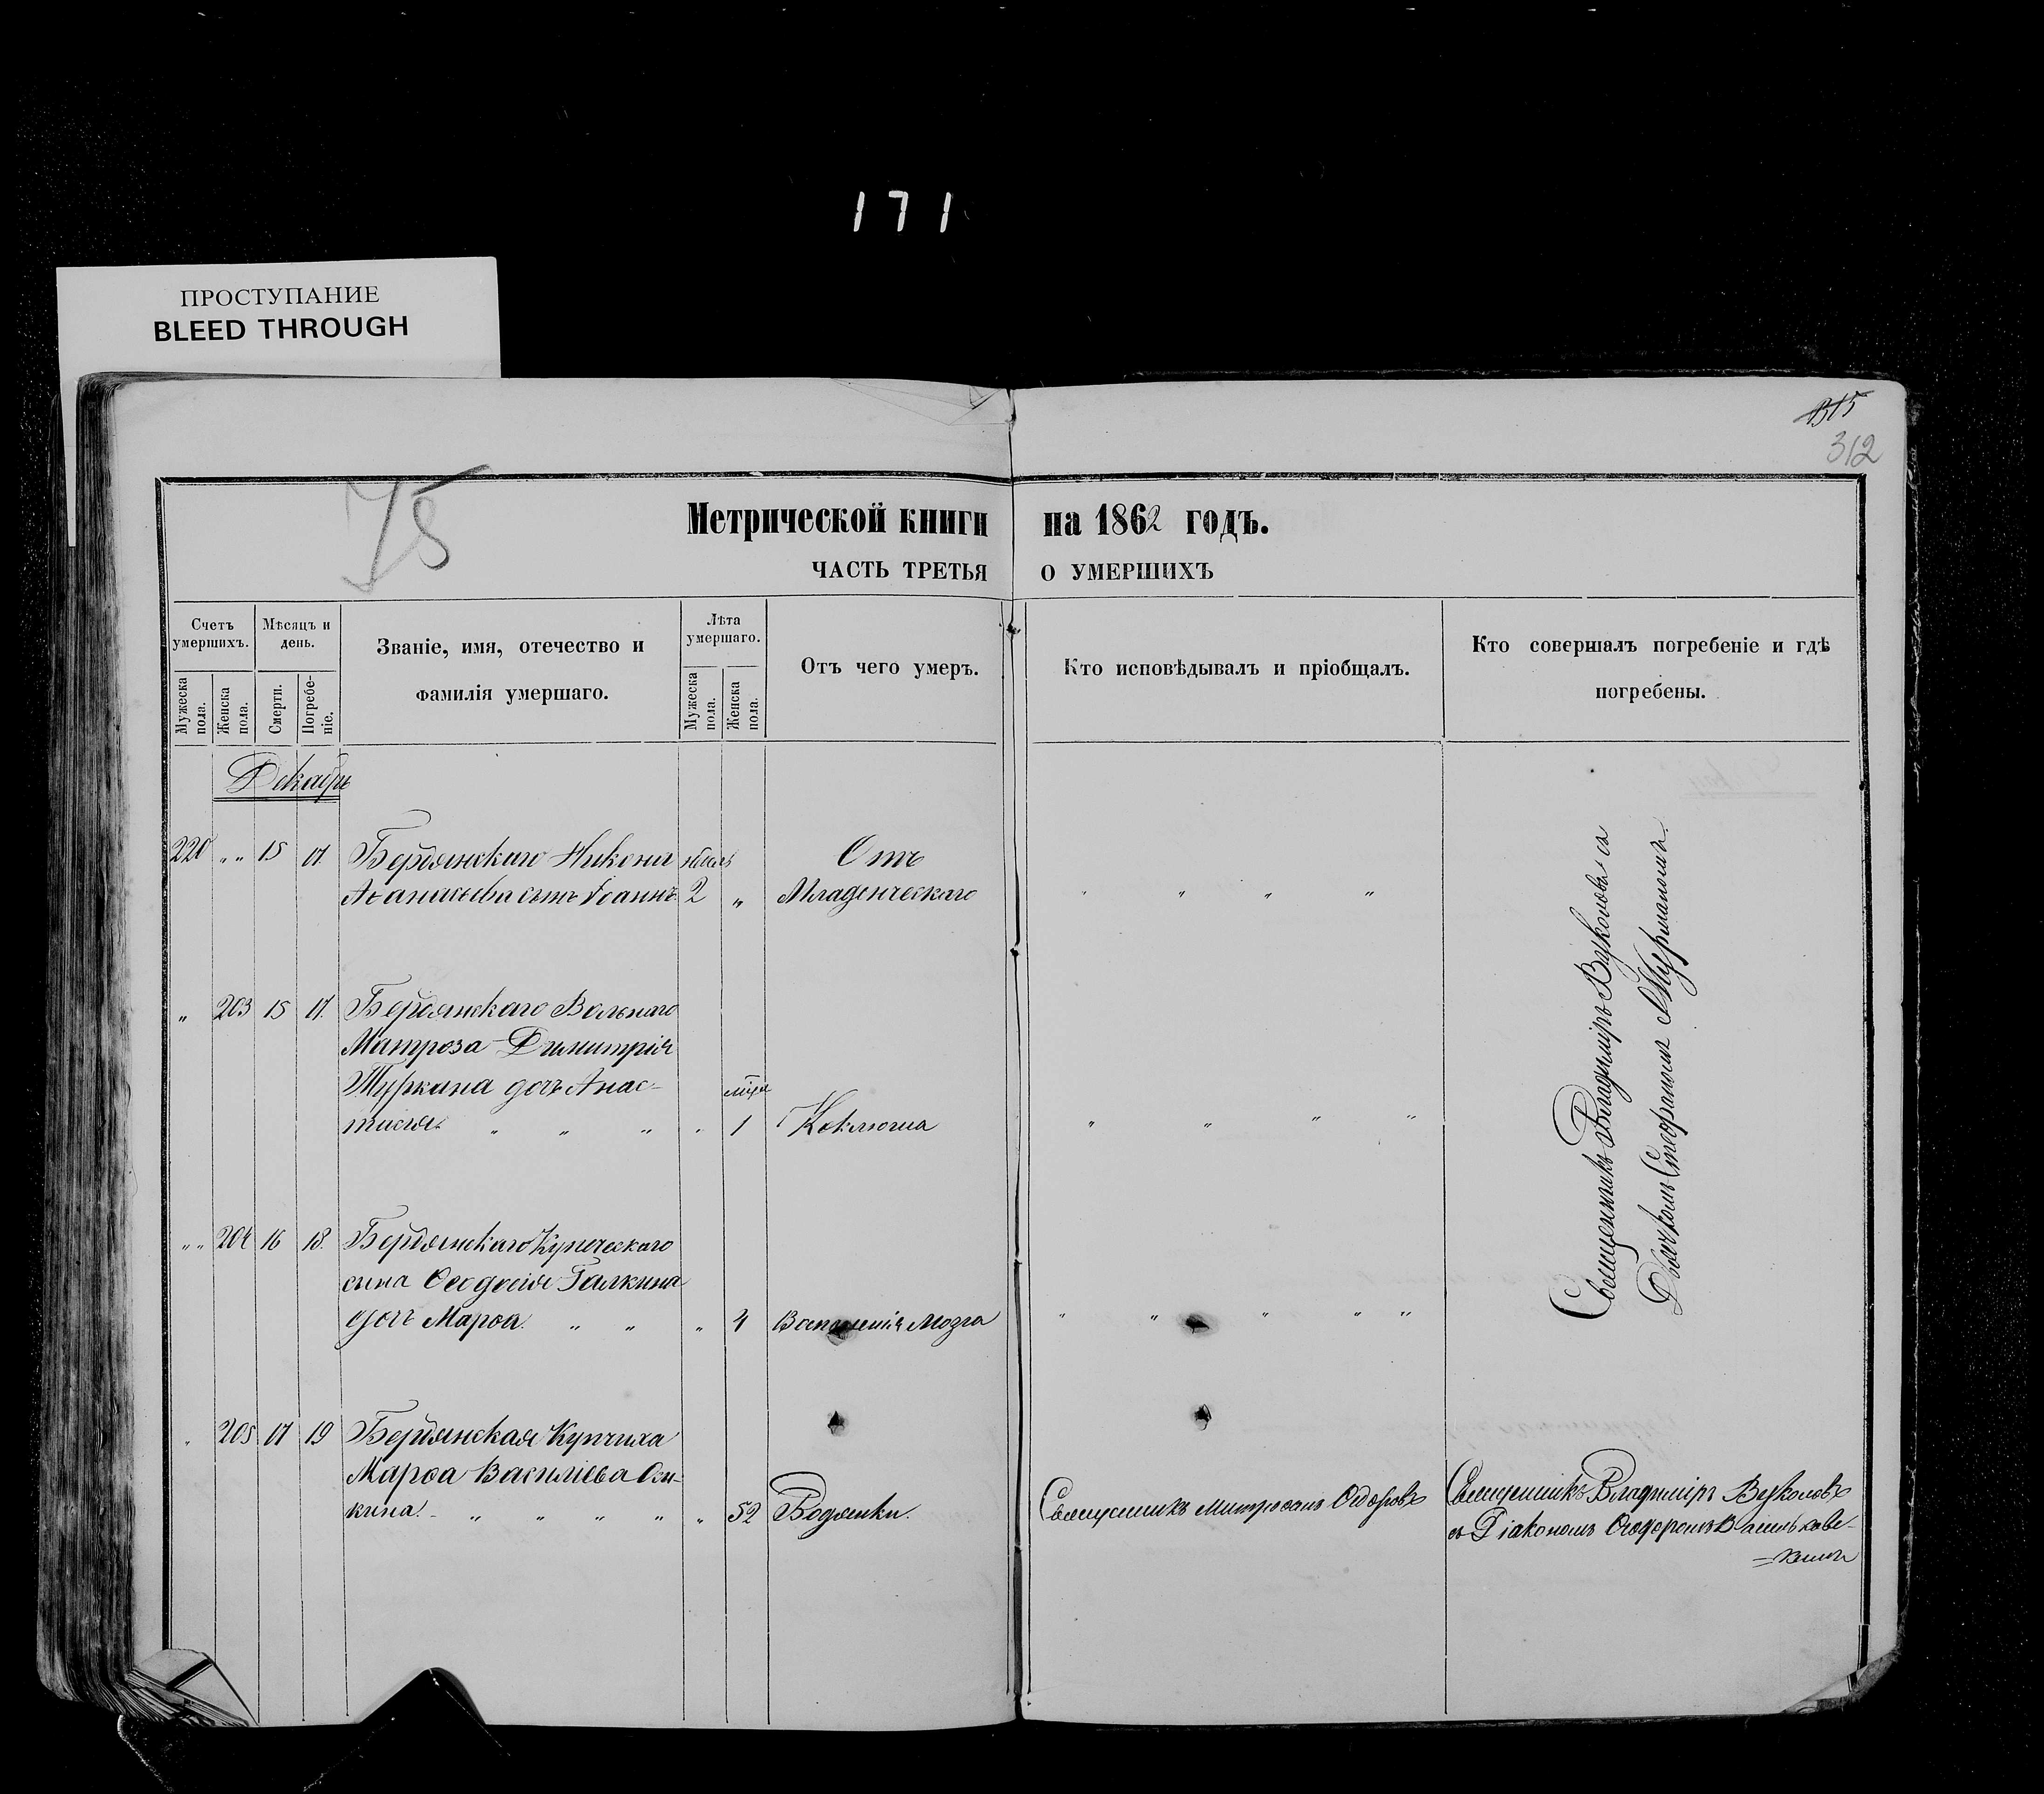 171
ПРОСТУПАНИЕ
BLEED THROUGH
315
312
75
Метрической книги на 1862 годъ.
ЧАСТЬ ТРЕТЬЯ О УМЕРШИХЪ
Счетъ умершихъ.
Мужеска пола.
Женска пола.
Мѣсяцъ и день.
Смерти.
Погребеніе.
Званіе, имя, отечество и
фамилія умершаго.
Лѣта умершаго.
Мужеска пола.
Женска пола.
Отъ чего умеръ.
Кто исповѣдывалъ и пріобщалъ.
Кто совершалъ погребеніе и гдѣ
погребены.
Декабрь
220 „ „ 15 17 Бердянскаго Никона Отъ
Аѳанасьева сынъ Іоаннъ 2 „ Младенческаго „ „ „ „
„ 203 15 17. Бердянскаго Вольнаго
Матроза Димитрія
Туркина дочь Анас-
тасія „ „ „ „ 1 Коклюша „ „ „ „
„ „ 204 16 18. Бердянскаго Купеческаго
сына Ѳеодосія Галкина
дочь Марѳа. „ „ „ 4 Воспаленія Мозга „ „ „ „ „
Священникъ Владиміръ Вуколовъ съ
Дьячкомъ Стефаномъ
„ 205 17 19 Бердянская Купчиха
Марѳа Василіева Оси-
кина. „ „ „ „ „ 52 Водянки. Священникъ Митрофанъ Ѳедоровъ Священникъ Владиміръ Вуколовъ
съ Діакономъ Ѳеодоромъ